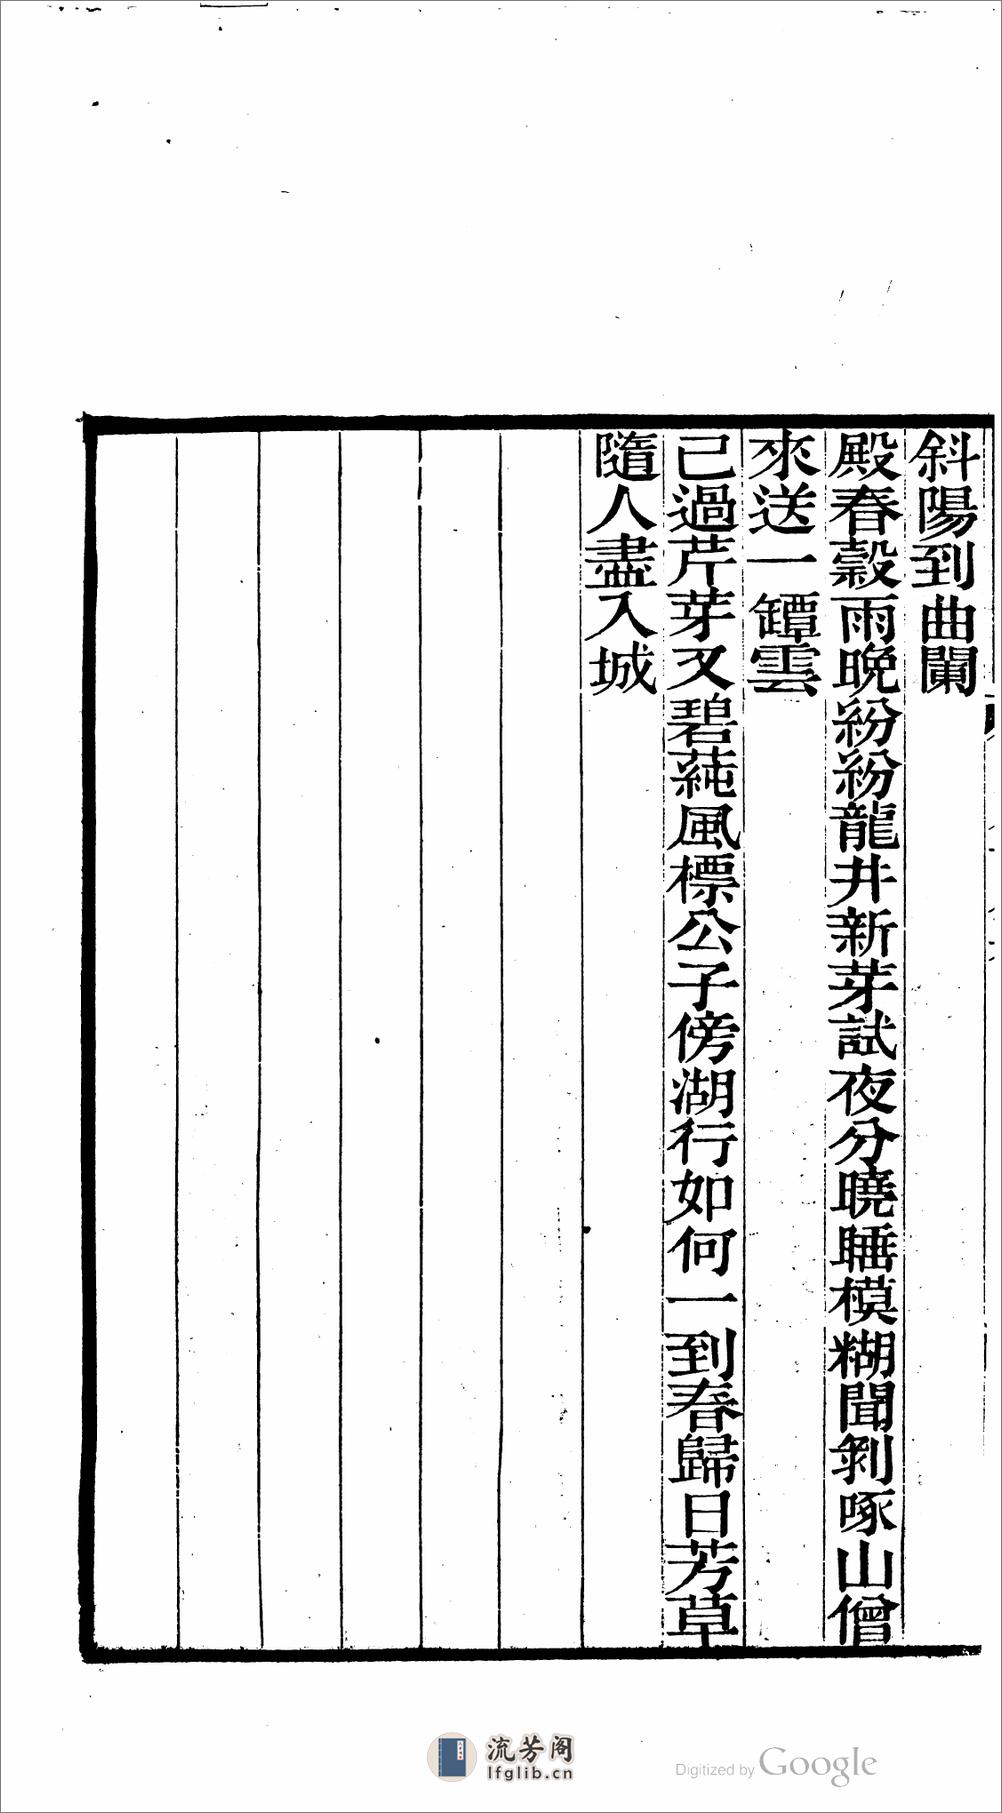 斜陽到曲闌
殿春穀雨晚紛紛龍井新芽試夜分曉睡模糊聞剝啄山僧
來送一罈雲
已過芹芽又碧蒓風標公子傍湖行如何一到春歸日芳草
隨人盡入城
流芳阁
lfglib.cn
Digitized by Google